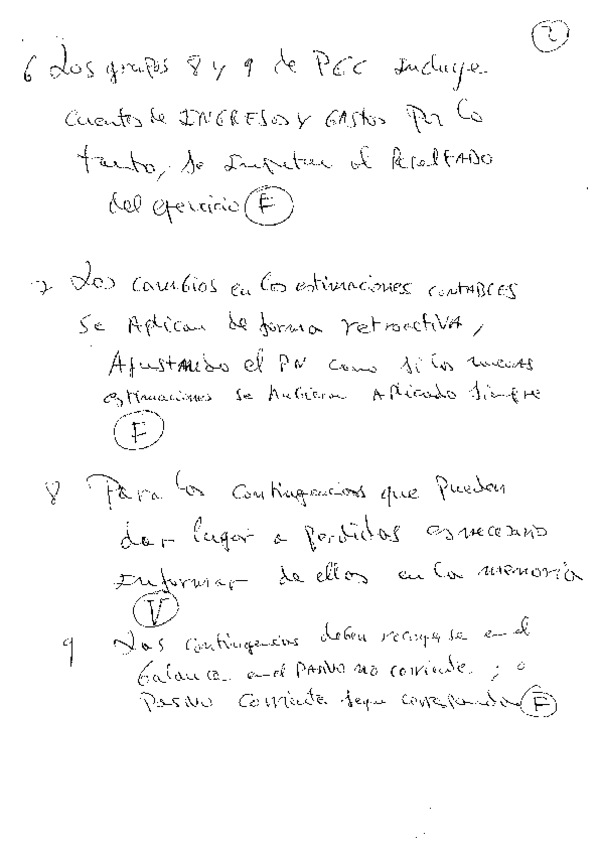 2
6 Los grupos 8 y 9 de PGC Incluye
cuentas de INGRESOS y GASTOS Por lo
tanto, se Imputan al ResulTADO
del ejercicio F
7 Los cambios en las estimaciones contABLES
Se Aplican de forma retroactiVA,
AjustANDO el PN como si las nuevas
estimaciones se hubieran Aplicado siempre
F
8 Para las contingencias que Puedan
dar lugar a perdidas es necesario
Informar de ellas en la memoria
V
9 Las contingencias deben recogerse en el
balance en el PASIVO no corriente ; o
Pasivo Corriente segun corresponda F